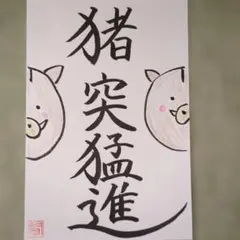 猪突猛進